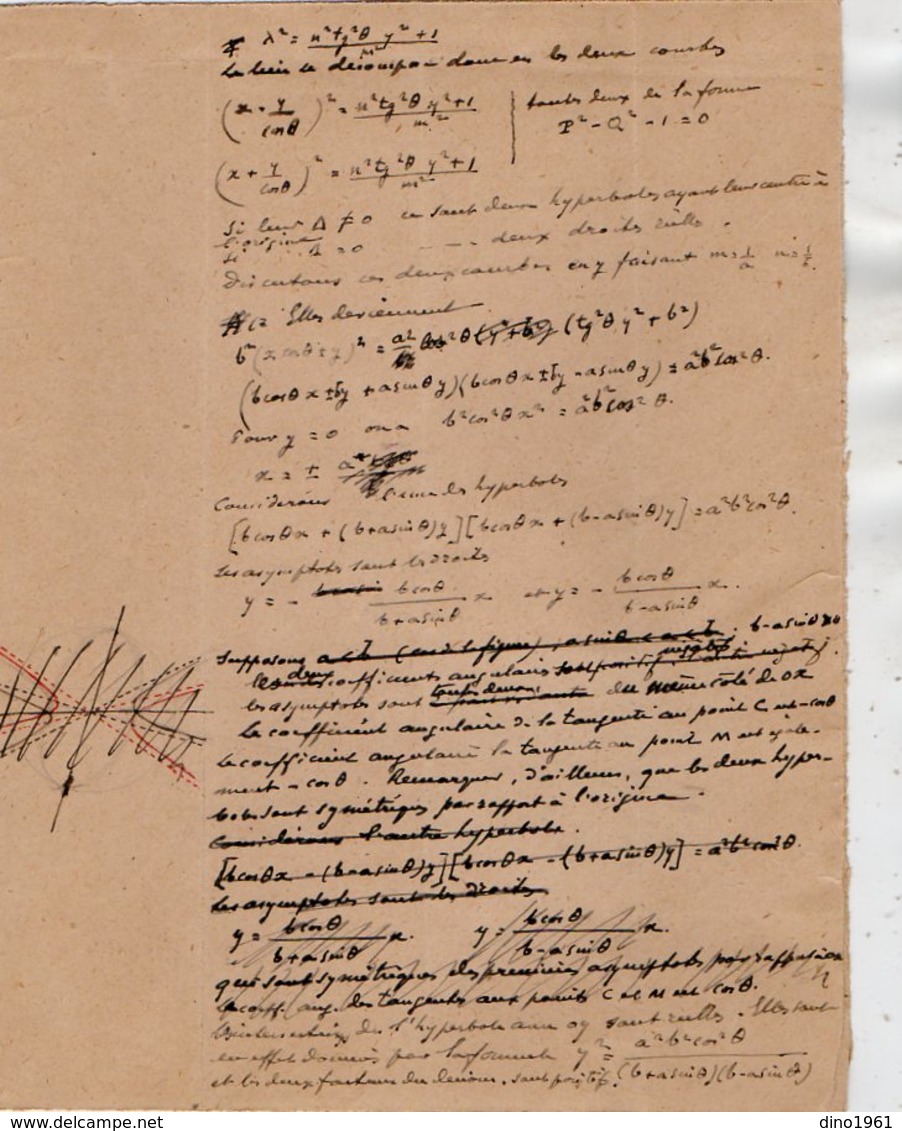 λ² = n²tg²θ y² + 1 / m²
se décompose donc en les deux courbes
(x - y/cosθ)² = n²tg²θ y² + 1 / m²
toutes deux de la forme
P² - Q² - 1 = 0
(x + y/cosθ)² = n²tg²θ y² + 1 / m²
Si leur Δ ≠ 0 ce sont deux hyperboles ayant leur centre à
l'origine
Si Δ = 0 - - - deux droites réelles.
Discutons ces deux courbes en y faisant m = 1/a n = 1/b.
Elles deviennent
b²(x cosθ ± y)² = a² cos²θ (tg²θ y² + b²)
(b cosθ x ± by + a sinθ y)(b cosθ x ± by - a sinθ y) = a²b²cos²θ.
Pour y = 0 on a b²cos²θ x² = a²b²cos²θ.
x = ± a
Considérons l'une des hyperboles
[b cosθ x + (b + a sinθ)y][b cosθ x + (b - a sinθ)y] = a²b²cos²θ.
Les asymptotes sont les droites
y = - b cosθ / b + a sinθ x et y = - b cosθ / b - a sinθ x.
Supposons a < b (cas de la figure), a sinθ < a < b. b - a sinθ > 0
les deux coefficients angulaires sont négatifs
les asymptotes sont toutes deux du même côté de ox
Le coefficient angulaire de la tangente au point C est - cosθ
Le coefficient angulaire la tangente au point M est égale-
ment - cosθ. Remarquons, d'ailleurs, que les deux hyper-
boles sont symétriques par rapport à l'origine.
Considérons l'autre hyperbole.
[b cosθ x - (b - a sinθ)y][b cosθ x - (b + a sinθ)y] = a²b²cos²θ.
Les asymptotes sont les droites
y = b cosθ / b + a sinθ x. y = b cosθ / b - a sinθ x.
qui sont symétriques des premières asymptotes par rapport à
Le coeff. ang. des tangentes aux points C et M est cosθ.
Les intersections de l'hyperbole avec oy sont réelles. Elles sont
en effet données par la formule y² = a²b²cos²θ / (b + a sinθ)(b - a sinθ)
et les deux facteurs du dénom. sont positifs.
dino1961